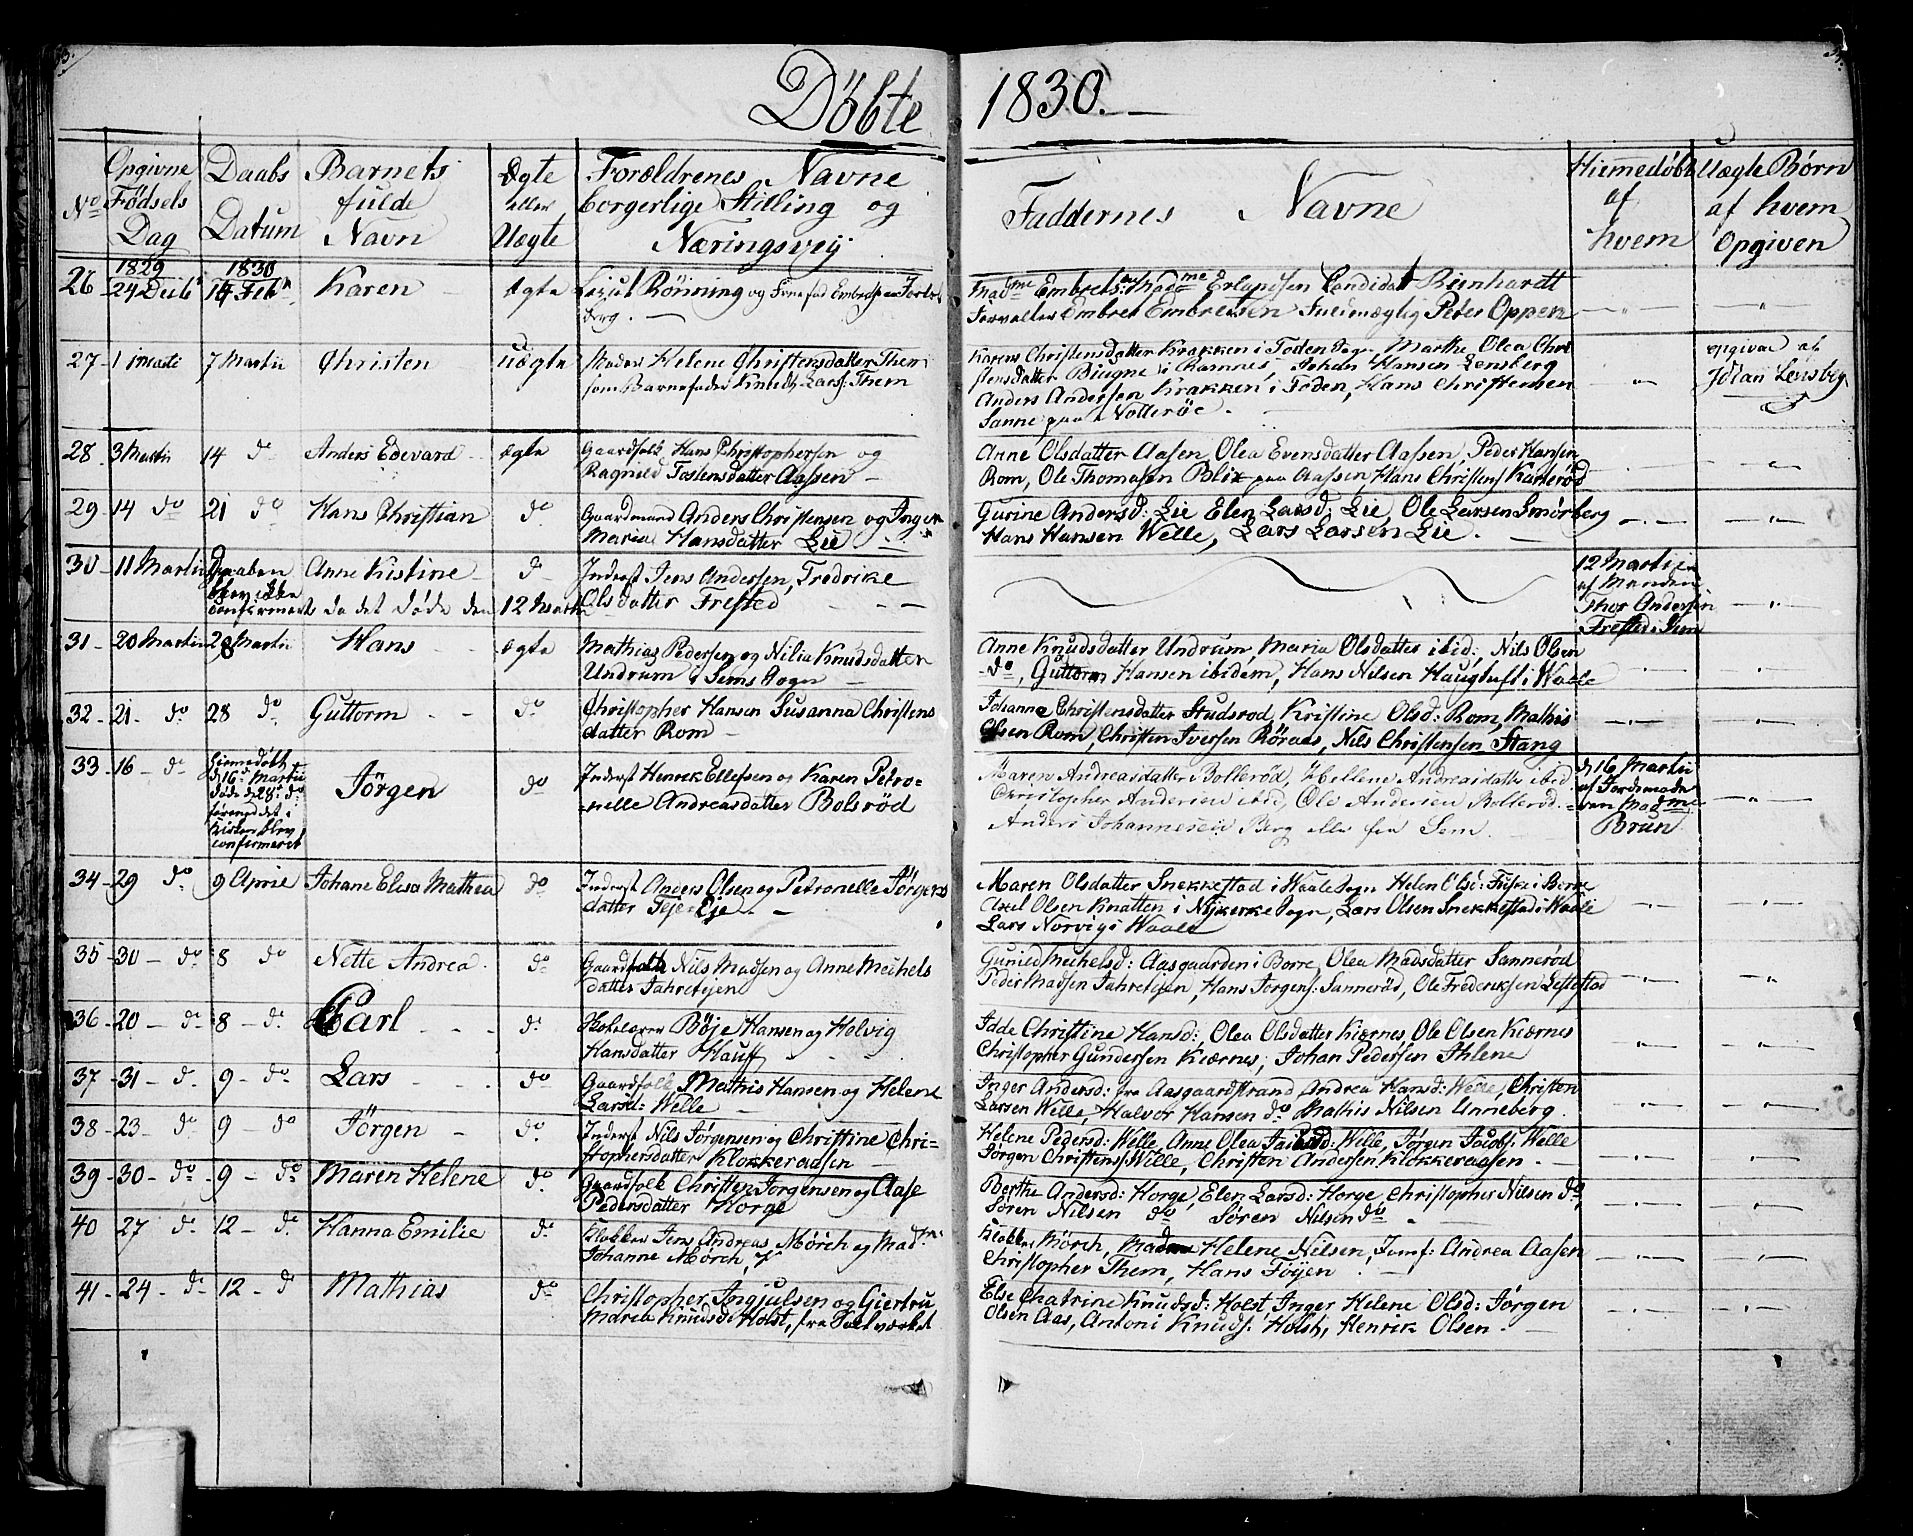 Döbte 1830.
No
Opgivne Födsels Dag
Daabs Datum
Barnets fulde Navn
Ægte eller Uægte
Forældrenes Navne borgerlige Stilling og Næringsveij
Faddernes Navne
Hiemedøbt af hvem
Uægte Børn af hvem Opgiven
1829 1830
26 24 Decbr 14 Febr Karen Ægte
Rönning og
berg.
Madme Embretsen Madme Erlandsen Candidat Reinhardt
Forvalter Embret Embretsen Peter Oppen
27 1 Marti 7 Martii Christen uægte
Moder Helene Christensdatter Them
som Barnefader Knud Larss. Them
Karen Christensdatter Krakken i Foden Sogn Marthe Olea Chri
stensdatter Biugne i Ramnes, Johan Hansen Lensberg
Anders Andersen Krakken i Foden, Hans Christensen
Sanne paa Nötteröe.
opgivne af
Johan Lensberg
28 3 Martii 14 do Anders Edevard ægte
Gaardfolk Hans Christophersen og
Ragnild Tostensdatter Aassen
Anne Olsdatter Aasen, Olea Evensdatter Aassen, Peder Hansen
Rom, Ole Thomasen Blix paa Aassen Hans Christens Karteröd
29 14 do 21 do Hans Christian do
Gaardmand Anders Christensen og Inger
Maria Hansdatter Lie
Gurine Andersd: Lie Elen Larsd: Lie, Ole Larsen Smörberg
Hans Hansen Welle, Lars Larsen Lie.
30 11 Martii Daaben Anne Kistine do
blev ikke
confirmert da det döde den 12 Martii
Inderst Jens Andersen, Fredrike
Olsdatter Frested
12 Martii
af Manden
Thor Andersen
Frested i Sem
31 20 Martii 28 Martii Hans ægte
Mathias Pedersen og Nilia Knudsdatter
Undrum i Sems Sogn
Anne Knudsdatter Undrum, Maria Olsdatter ibid; Nils Olsen
do, Guttorm Hansen ibidem, Hans Nilsen Haugtuft i Waale
32 21 do 28 do Guttorm do
Christopher Hansen Susanna Christens
datter Rom
Johanne Christensdatter Studsrod, Kristine Olsd: Rom, Mathis
Olsen Rom, Christen Iversen Röraas, Nils Christensen Stang
33 16 do Jörgen do
Hiemedöbt
d 16 Martii
döde d 28 do
förend det i
Kirken blev
confirmeret
Inderst Henrik Ellefsen og Karen Petro-
nelle Andreasdatter Bolsröd
Maren Andreasdatter Bolleröd, Hellene Andreasdatter ibid
Christopher Andersen ibid, Ole Andersen Bolleröd.
Anders Johannesen Berg alle fra Sem
d 16 Martii
af Jordemode
ren Madme
Brun
34 29 do 9 April Johane Elisa Mathea do
Inderst Anders Olsen og Petronelle Jörgens
datter Fejer Eje
Maren Olsdatter Snekkestad i Waale Sogn Helen Olsd: Fuske i Borre
Axel Olsen Knatten i Nykerke Sogn, Lars Olsen Snekkestad i Waale
Lars Norvig i Waale
35 30 do 8 do Nette Andrea do
Gaardfolk Nils Madsen og Anne Michels
datter Jahretejen
Gunild Michelsd: Aasgaarden i Borre, Olea Madsdatter Sanneröd
Peder Madsen Jahretejen, Hans Jörgens: Sanneröd, Ole Frederiksen Lefsestad
36 20 do 8 do Carl do
Böje Hansen og Helvig
Hansdatter Hauff
Idde Christine Hansd: Olea Olsdatter Kiærnes Ole Olsen Kiærnes
Christopher Gundersen Kiærnes, Johan Pedersen Ihlene
37 31 do 9 do Lars do
Gaardfolk Mathis Hansen og Helene
Larsd: Welle
Inger Andersd: fra Aasgaardstrand, Andrea Hansd: Welle, Christen
Larsen Welle, Halvor Hansen do Mathis Nilsen Unneberg.
38 23 do 9 do Jörgen do
Inderst Nils Jörgensen og Christine Chri-
stophersdatter Klokkeraasen
Helene Pedersd: Welle, Anne Olea Jacobsd: Welle, Jörgen Jacobs: Welle
Jörgen Christens: Wille, Christen Andersen Klokkeraasen.
39 30 do 9 do Maren Helene do
Gaardfolk Christen Jörgensen og Aase
Pedersdatter Horge
Berthe Andersd: Horge, Elen Larsd: Horge, Christopher Nilsen do,
Sören Nilsen do Sören Nilsen do
40 27 do 12 do Hanna Emilie do
Klokker Jens Andreas Mörch og Madme
Johanne Mörch,
Klokker Mörch, Madme Helene Nilsen, Jomf: Andrea Aasen
Christopher Them, Hans Föyen
41 24 do 12 do Mathias do
Christopher Ingjulsen og Giertru
Maria Knudsd: Holst, fra Saltværket
Else Chatrine Knudsd: Holst Inger Helene Olsd: Jörgen
Olsen Aas, Antoni Knuds: Holst, Henrik Olsen.